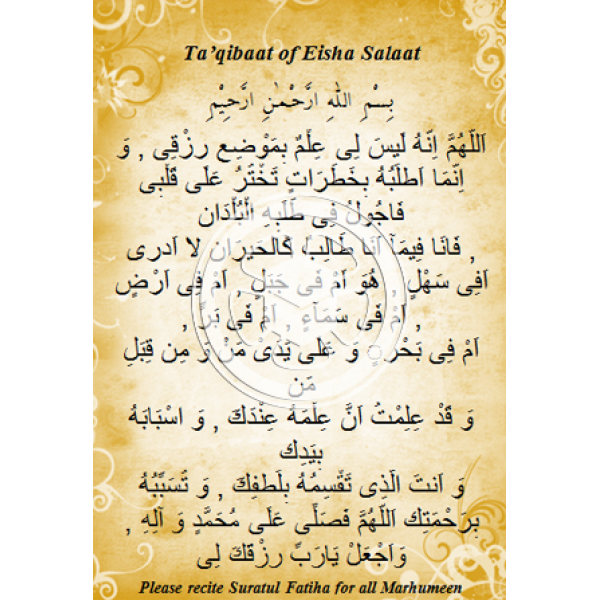 Ta'qibaat of Eisha Salaat
بِسْمِ اللهِ الرَّحْمٰنِ الرَّحِيْمِ
اَللّٰهُمَّ اِنَّهُ لَيسَ لِى عِلْمٌ بِمَوْضِعِ رِزْقِى , وَ
اِنَّمَا اَطلُبُهُ بِخَطَرَاتٍ تَخْتَرُ عَلٰى قَلْبِى
فَاجُولُ فِى طَلَبِهِ الْبُلْدَان
, فَانَا فِيمَآ اَنَا طَالِبٌ كَالحَيرَانِ لا اَدرى
اَفِى سَهْلٍ , هُوَ اَمْ فَى جَبَلٍ , اَمْ فِى اَرْضٍ
, اَمْ فَى سَمَآءٍ , اَمْ فَى بَرٍّ ,
اَمْ فِى بَحْرٍ وَ عَلٰى يَدَىْ مَنْ وَ مِن قِبَلِ
مَن
وَ قَدْ عِلِمْتُ اَنَّ عِلْمَهُ عِنْدَكَ , وَ اسْبَابَهُ
بِيَدِك
وَ اَنتَ الَّذِى تَقْسِمُهُ بِلَطفِكَ , وَ تُسَبِّبُهُ
بِرَحْمَتِك اَللّٰهُمَّ فَصَلَّى عَلٰى مُحَمَّدٍ وَ آلِهِ ,
وَاَجْعَلْ يَارَبِّ رِزْقَكَ لِى
Please recite Suratul Fatiha for all Marhumeen